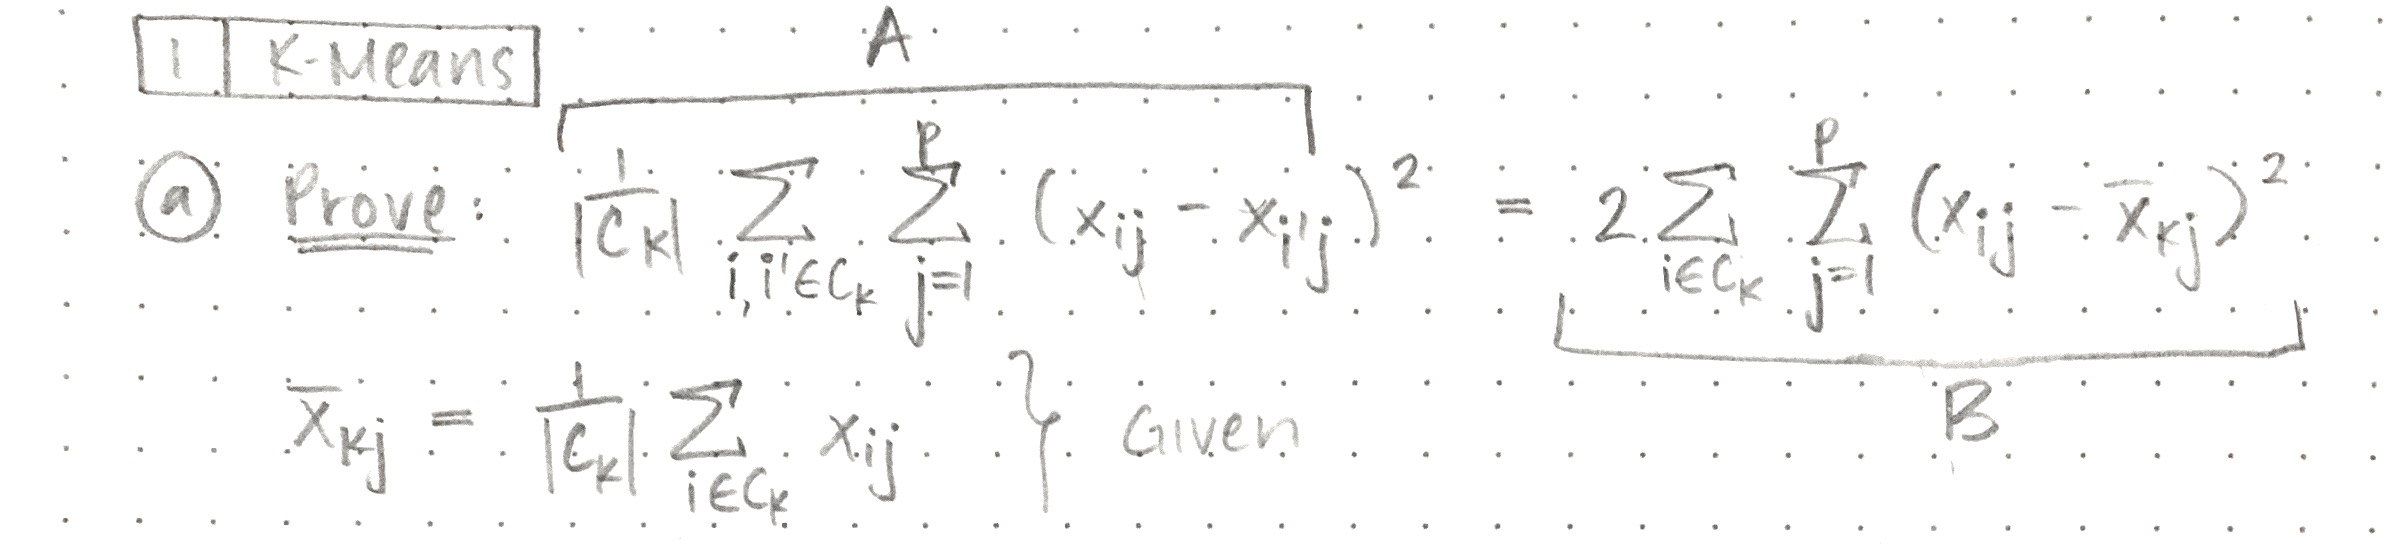 1 K-Means
A
ⓐ Prove: 1/|C_K| Σ_{i,i'∈C_K} Σ_{j=1}^{P} (x_{ij} - x_{i'j})² = 2 Σ_{i∈C_K} Σ_{j=1}^{P} (x_{ij} - x̄_{Kj})²
B
x̄_{Kj} = 1/|C_K| Σ_{i∈C_K} x_{ij} } Given